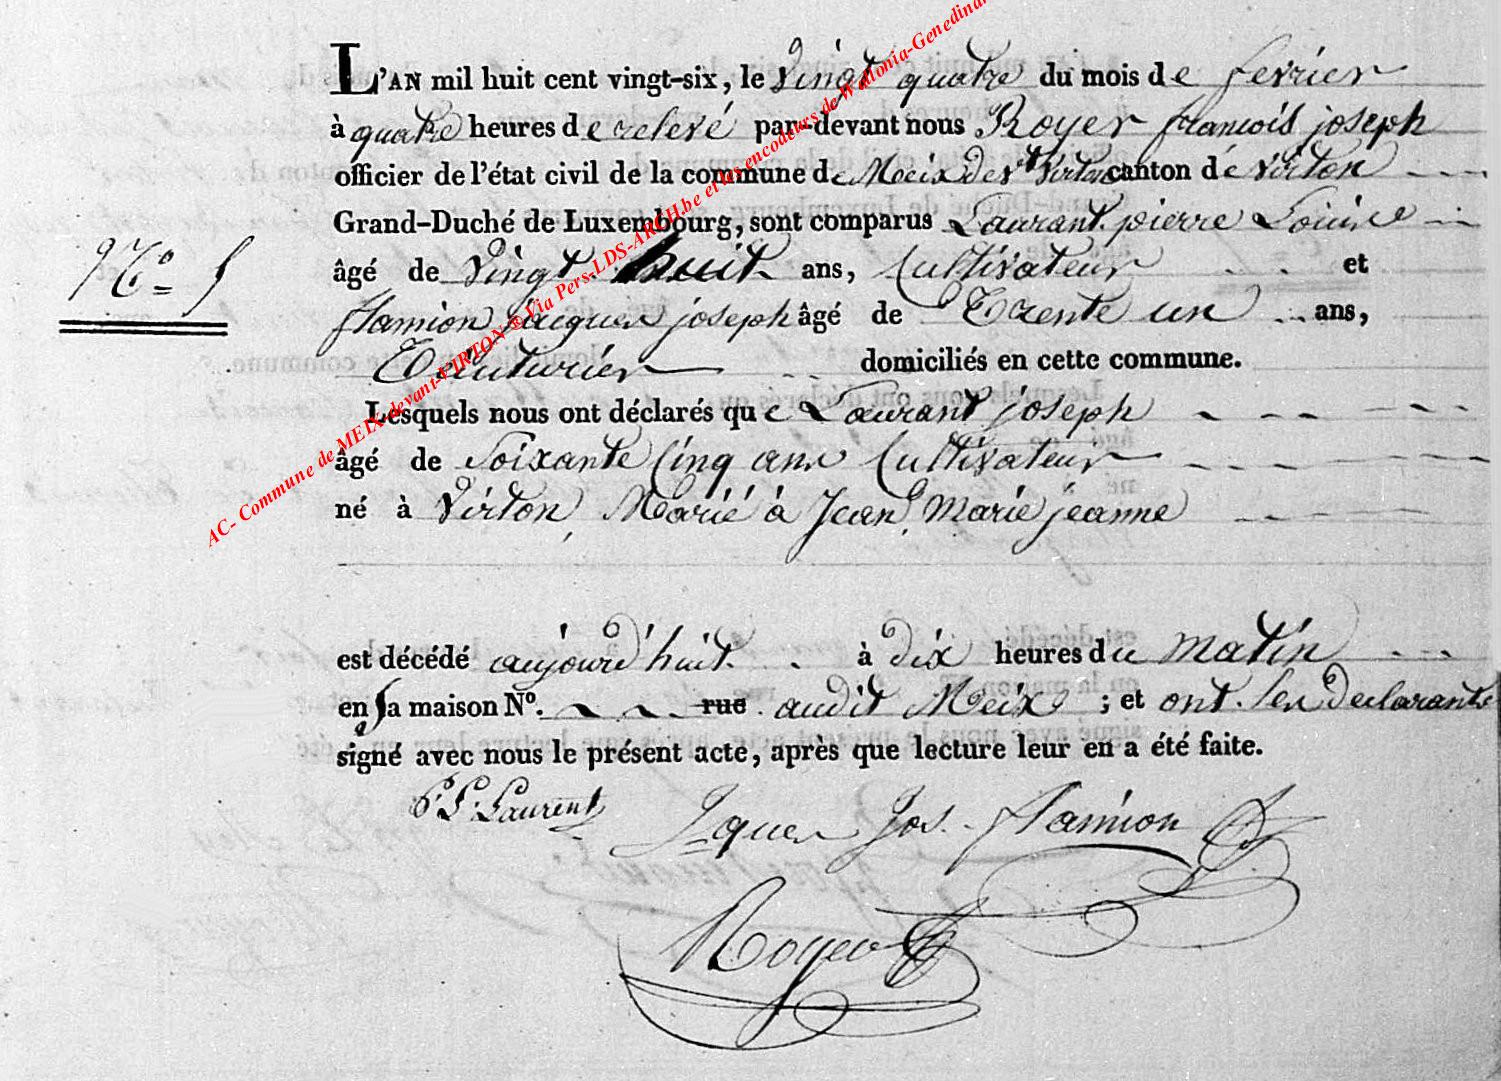 L'AN mil huit cent vingt-six, le vingt quatre du mois de fevrier
à quatre heures de relevé par-devant nous Royer francois joseph
officier de l'état civil de la commune de Meix devt Virton canton de virton
Grand-Duché de Luxembourg, sont comparus Laurant pierre Louis
âgé de vingt huit ans, Cultivateur et
N° 5
flamion jacques joseph âgé de Trente un ans,
Teinturier domiciliés en cette commune.
Lesquels nous ont déclarés que Laurant joseph
âgé de Soixante Cinq ans Cultivateur
né à Virton, Marié à Jean, Marie jeanne
est décédé aujourd'huit à dix heures du matin
en sa maison N°. rue audit Meix ; et ont les declarants
signé avec nous le présent acte, après que lecture leur en a été faite.
P. L. Laurent Jques Jos. flamion
Royer
AC- Commune de MEIX-devant-VIRTON ® Via Pers-LDS-ARCH.be et les encodeurs de Wallonia-Genedinan